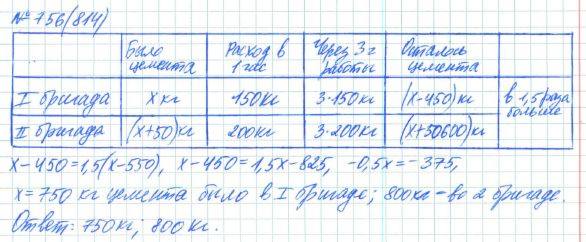 № 756(814)
Было цемента Расход в 1 час Через 3 г работы Осталось цемента
I бригада x кг 150кг 3·150кг (x-450)кг в 1,5 раза больше
II бригада (x+50)кг 200кг 3·200кг (x+50600)кг
x-450=1,5(x-550), x-450=1,5x-825, -0,5x=-375,
x=750 кг цемента было в I бригаде; 800кг-во 2 бригаде.
Ответ: 750кг; 800кг.